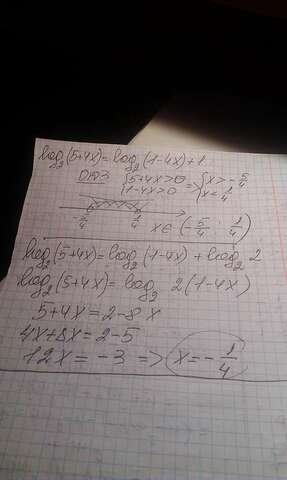 log₂(5+4x)=log₂(1-4x)+1
ОДЗ {5+4x>0 {1-4x>0 => {x>-5/4 {x<1/4
-5/4 1/4 x∈(-5/4; 1/4)
log₂(5+4x)=log₂(1-4x)+log₂ 2
log₂(5+4x)=log₂ 2(1-4x)
5+4x=2-8x
4x+8x=2-5
12x=-3 => x=-1/4